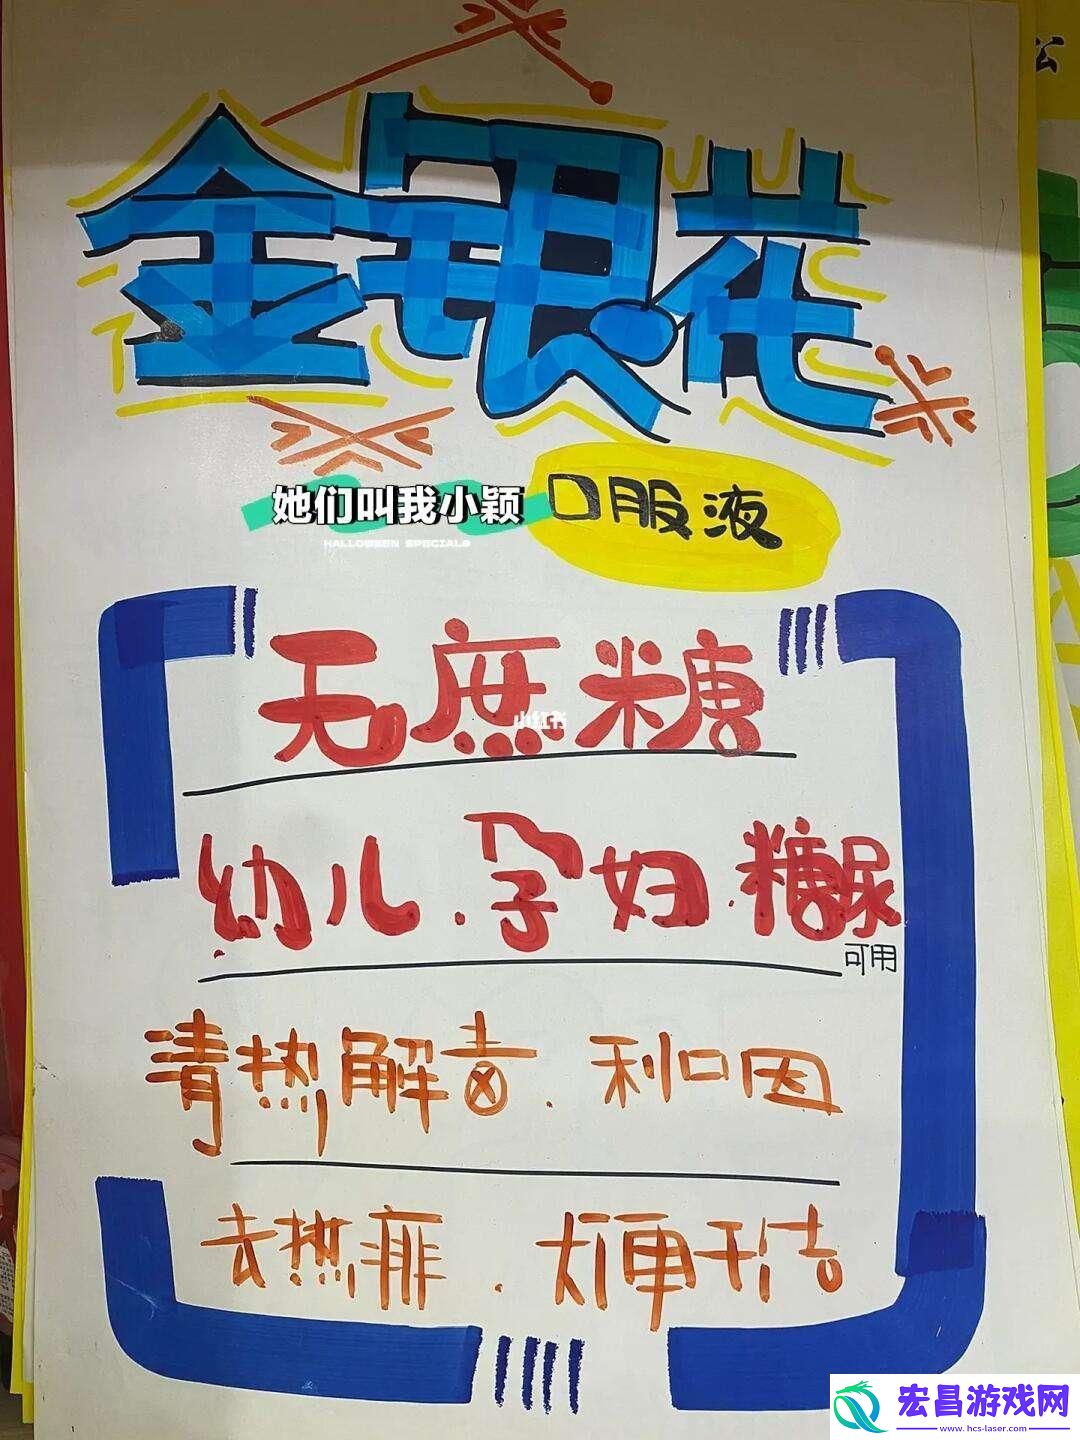 金银花
她们叫我小颖
HALLOWEEN SPECIALS
口服液
无蔗糖
小红书
幼儿.孕妇.糖尿
可用
清热解毒.利口因
去热痱.大便干结
公
宏昌游戏网
www.hcs-laser.com